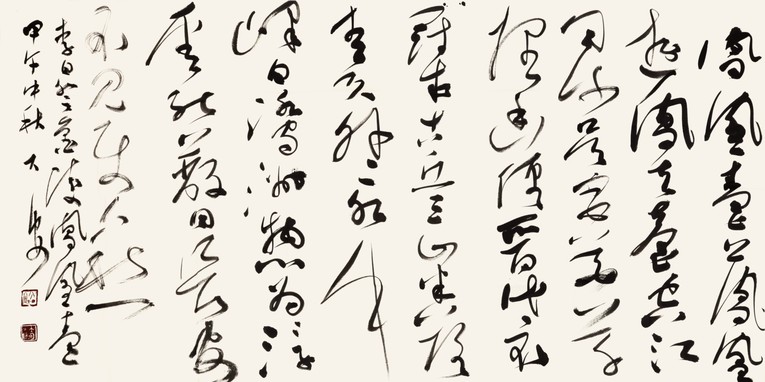 鳳凰臺上鳳凰
遊鳳去臺空江
自流吳宮花草
埋幽徑晉代衣
冠成古丘三山半落
青天外二水中
分白鷺洲總為浮
雲能蔽日長安
不見使人愁
李白登金陵鳳凰臺
甲午中秋